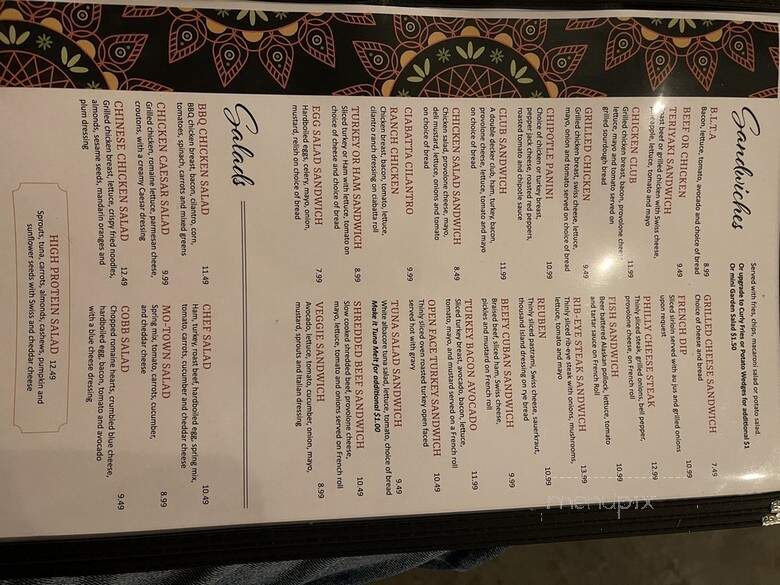 Sandwiches
Served with fries, chips, macaroni salad or potato salad,
Or upgrade to Curly Fries or Potato Wedges for additional $1
Or mini Garden Salad $1.50
B.L.T.A 8.99
Bacon, lettuce, tomato, avocado and choice of bread
BEEF OR CHICKEN
TERIYAKI SANDWICH 9.49
roast beef or grilled chicken with Swiss cheese,
pineapple, lettuce, tomato and mayo
CHICKEN CLUB 11.99
Grilled chicken breast, bacon, provolone cheese
lettuce, mayo and tomato served on
grilled sourdough bread
GRILLED CHICKEN 9.49
Grilled chicken breast, swiss cheese, lettuce,
mayo, onion and tomato served on choice of bread
CHIPOTLE PANINI 10.99
Choice of chicken or turkey breast,
pepper jack cheese, roasted red peppers,
roasted tomato and chipotle sauce
CLUB SANDWICH 11.99
A double decker club, ham, turkey, bacon,
provolone cheese, lettuce, tomato and mayo
on choice of bread
CHICKEN SALAD SANDWICH 8.49
Chicken salad, provolone cheese, mayo,
deli mustard, lettuce, onions and tomato
on choice of bread
CIABATTA CILANTRO
RANCH CHICKEN 9.99
Chicken breast, bacon, tomato, lettuce,
cilantro ranch dressing on ciabatta roll
TURKEY OR HAM SANDWICH 8.99
Sliced turkey or Ham with lettuce, tomato on
choice of cheese and choice of bread
EGG SALAD SANDWICH 7.99
Hardboiled eggs, celery, mayo, onion,
mustard, relish on choice of bread
GRILLED CHEESE SANDWICH 7.49
Choice of cheese and bread
FRENCH DIP 10.99
Sliced sirloin served with au jus and grilled onions
upon request
PHILLY CHEESE STEAK 12.99
Thinly sliced steak, grilled onions, bell pepper,
provolone cheese, on French roll
FISH SANDWICH 10.99
Beer battered Alaskan pollock, lettuce, tomato
and tartar sauce on French Roll
RIB-EYE STEAK SANDWICH 13.99
Thinly sliced rib-eye steak with onions, mushrooms,
lettuce, tomato and mayo
REUBEN 10.99
Thinly sliced pastrami, Swiss cheese, sauerkraut,
thousand island dressing on rye bread
BEEFY CUBAN SANDWICH 9.99
Braised beef, sliced ham, Swiss cheese,
pickles and mustard on French roll
TURKEY BACON AVOCADO 11.99
Sliced turkey breast, avocado, bacon, lettuce,
tomato, mayo, and mustard served on a French roll
OPEN FACE TURKEY SANDWICH 10.49
Thinly sliced oven roasted turkey open faced
served hot with gravy
TUNA SALAD SANDWICH 9.49
White albacore tuna salad, lettuce, tomato, choice of bread
Make it Tuna Melt for additional $1.00
SHREDDED BEEF SANDWICH 10.49
Slow cooked shredded beef, provolone cheese,
mayo, lettuce, tomato and onions served on French roll
VEGGIE SANDWICH 8.99
Avocado, lettuce, tomato, cucumber, onion, mayo,
mustard, sprouts and Italian dressing
Salads
BBQ CHICKEN SALAD 11.49
BBQ chicken breast, bacon, cilantro, corn,
tomatoes, spinach, carrots and mixed greens
CHICKEN CAESAR SALAD 9.99
Grilled chicken, romaine lettuce, parmesan cheese,
croutons, with a creamy Caesar dressing
CHINESE CHICKEN SALAD 12.49
Grilled chicken breast, lettuce, crispy fried noodles,
almonds, sesame seeds, mandarin oranges and
plum dressing
CHEF SALAD 10.49
Ham, turkey, roast beef, hardboiled egg, spring mix,
tomato, carrots, cucumber and cheddar cheese
MO-TOWN SALAD 8.99
Spring mix, tomato, carrots, cucumber,
and cheddar cheese
COBB SALAD 9.49
Chopped romaine hearts, crumbled blue cheese,
hardboiled egg, bacon, tomato and avocado
with a blue cheese dressing
HIGH PROTEIN SALAD 12.49
Sprouts, tuna, carrots, almonds, cashews, pumpkin and
sunflower seeds with Swiss and cheddar cheese
menupix